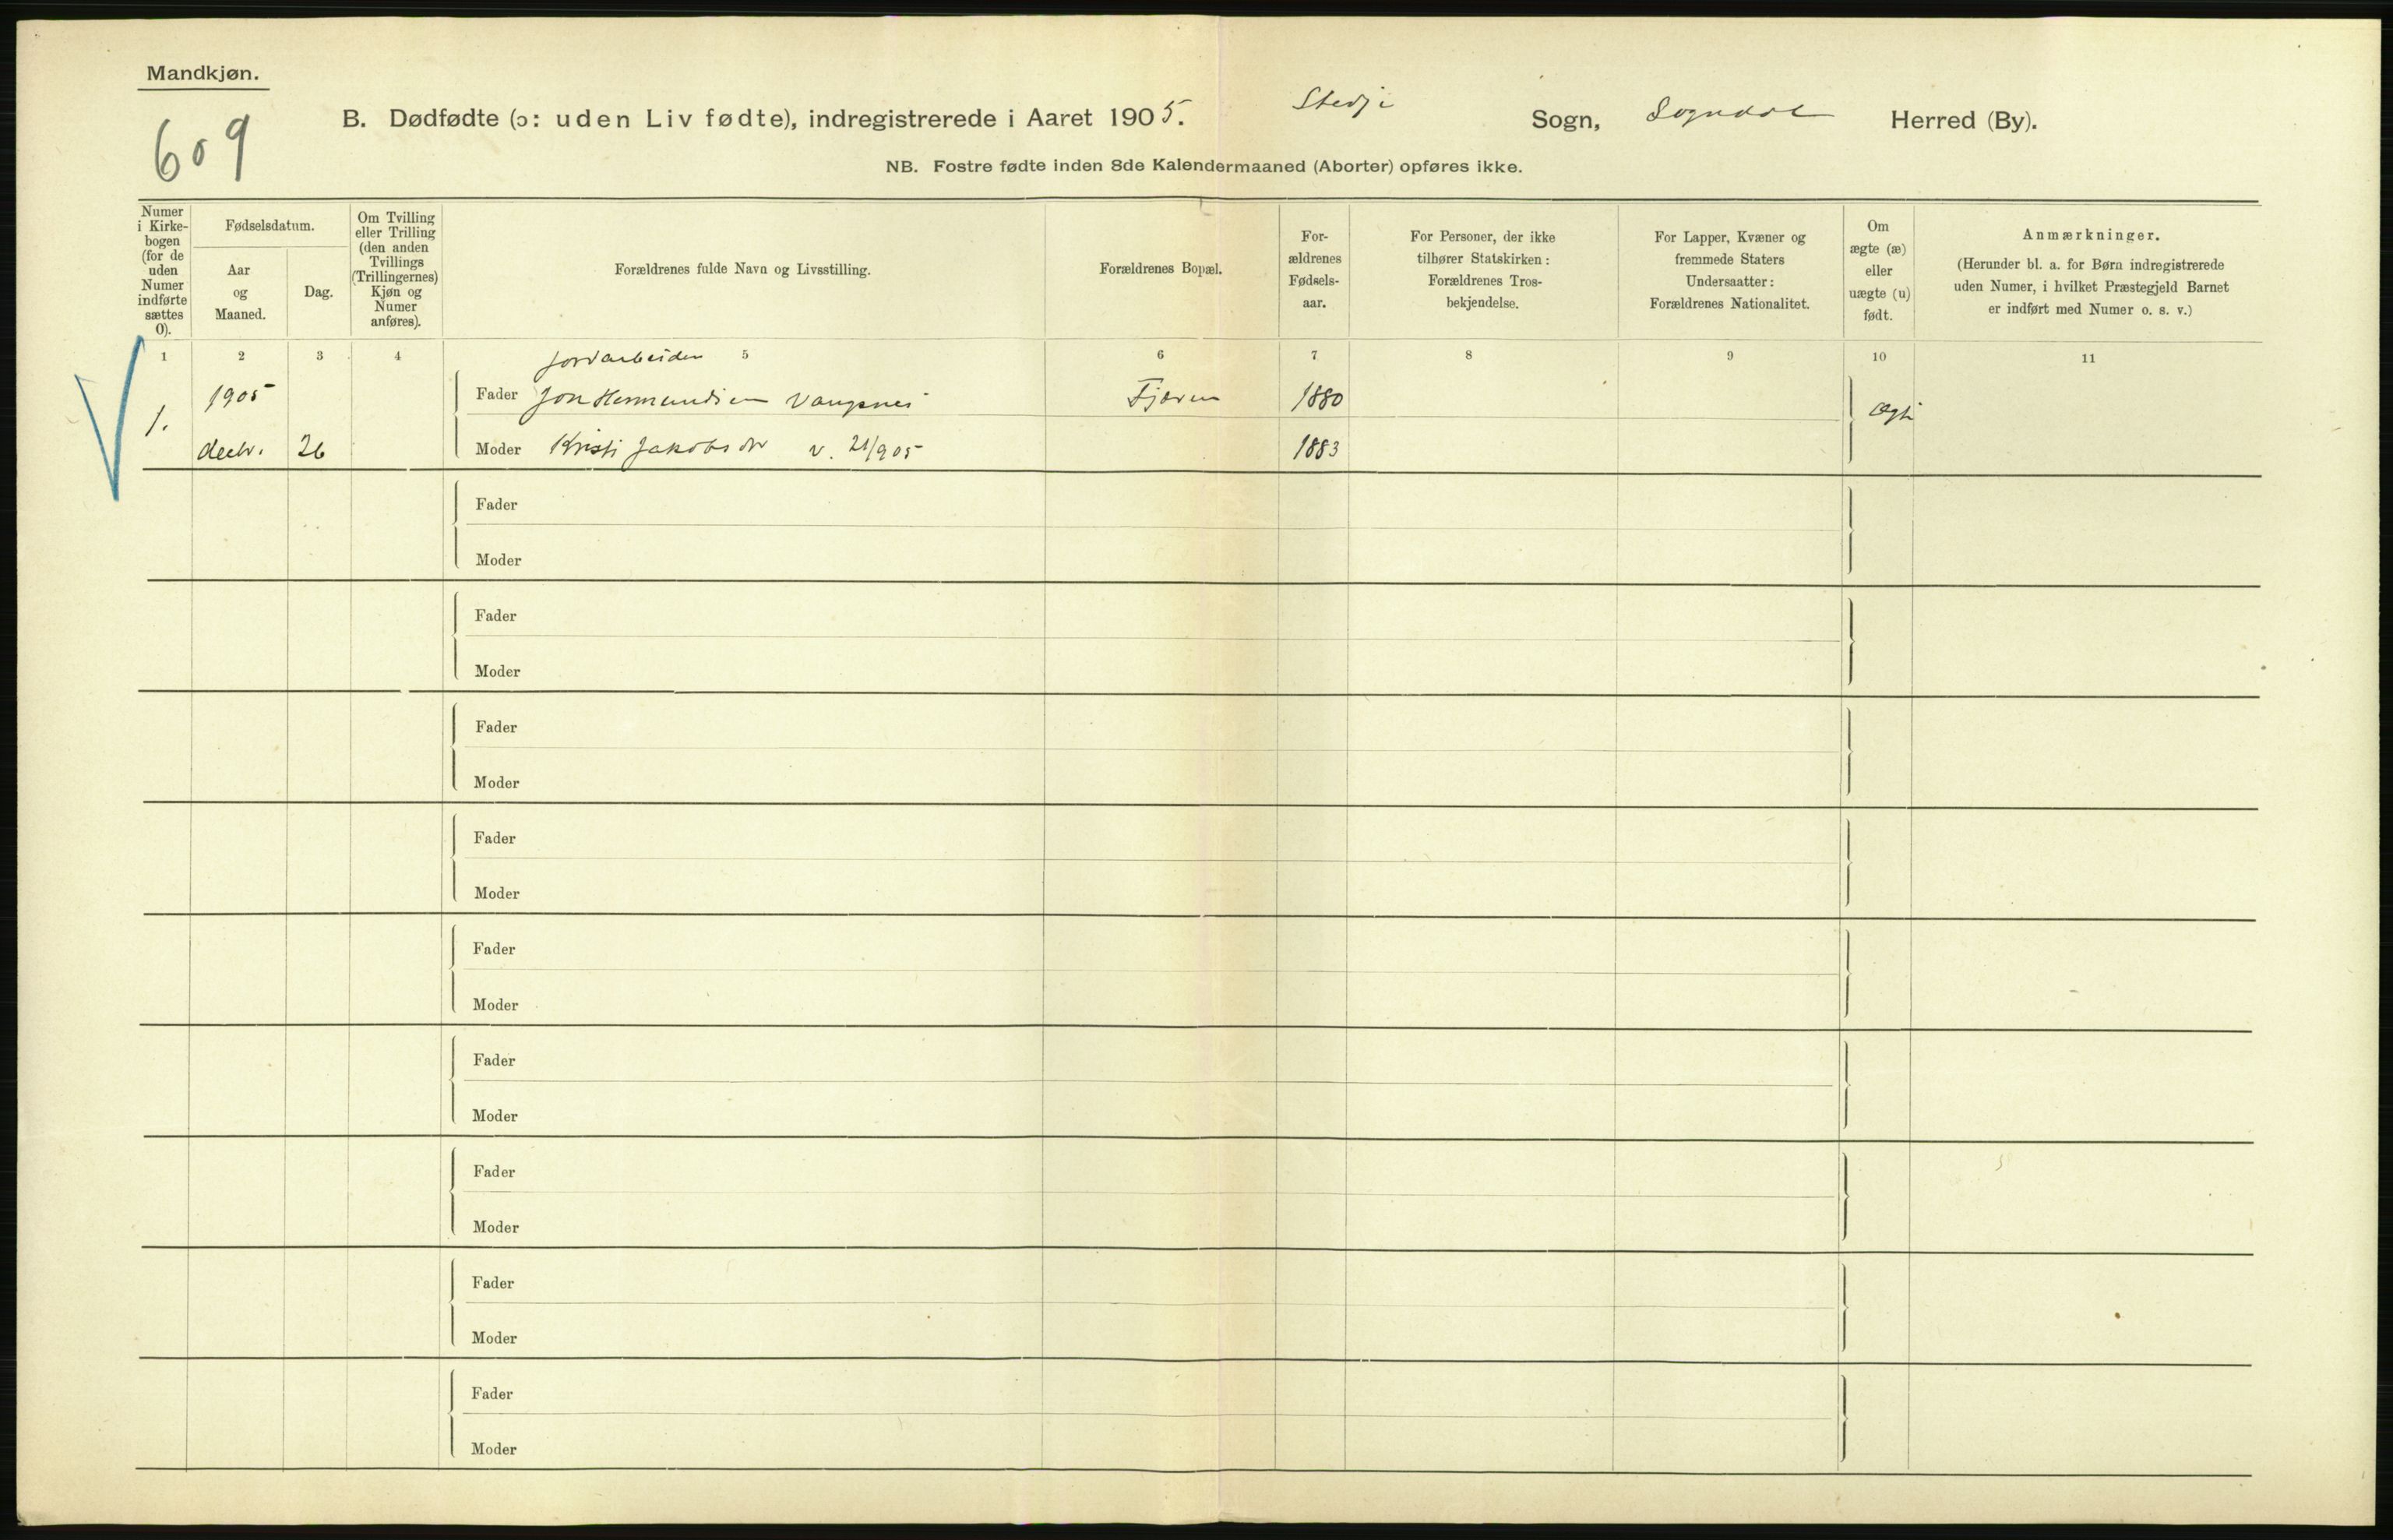 Mandkjøn.
609
B. Dødfødte (ɔ: uden Liv fødte), indregistrerede i Aaret 1905. Stedje Sogn, Sogndal Herred (By).
NB. Fostre fødte inden 8de Kalendermaaned (Aborter) opføres ikke.
Numer i Kirke-bogen (for de uden Numer indførte sættes 0).
Fødselsdatum.
Aar og Maaned.
Dag.
Om Tvilling eller Trilling (den anden Tvillings (Trillingernes) Kjøn og Numer anføres).
Forældrenes fulde Navn og Livsstilling.
Forældrenes Bopæl.
For-ældrenes Fødsels-aar.
For Personer, der ikke tilhører Statskirken: Forældrenes Tros-bekjendelse.
For Lapper, Kvæner og fremmede Staters Undersaatter: Forældrenes Nationalitet.
Om ægte (æ) eller uægte (u) født.
Anmærkninger.
(Herunder bl. a. for Børn indregistrerede uden Numer, i hvilket Præstegjeld Barnet er indført med Numer o. s. v.)
1 2 3 4 5 6 7 8 9 10 11
Jordarbeider
1. 1905 Fader Jon Hermundsen Vangsnes Fjæren 1880 Ægte
decbr. 26 Moder Kristi Jakobsdtr v. 21/905 1883
Fader
Moder
Fader
Moder
Fader
Moder
Fader
Moder
Fader
Moder
Fader
Moder
Fader
Moder
Fader
Moder
Fader
Moder